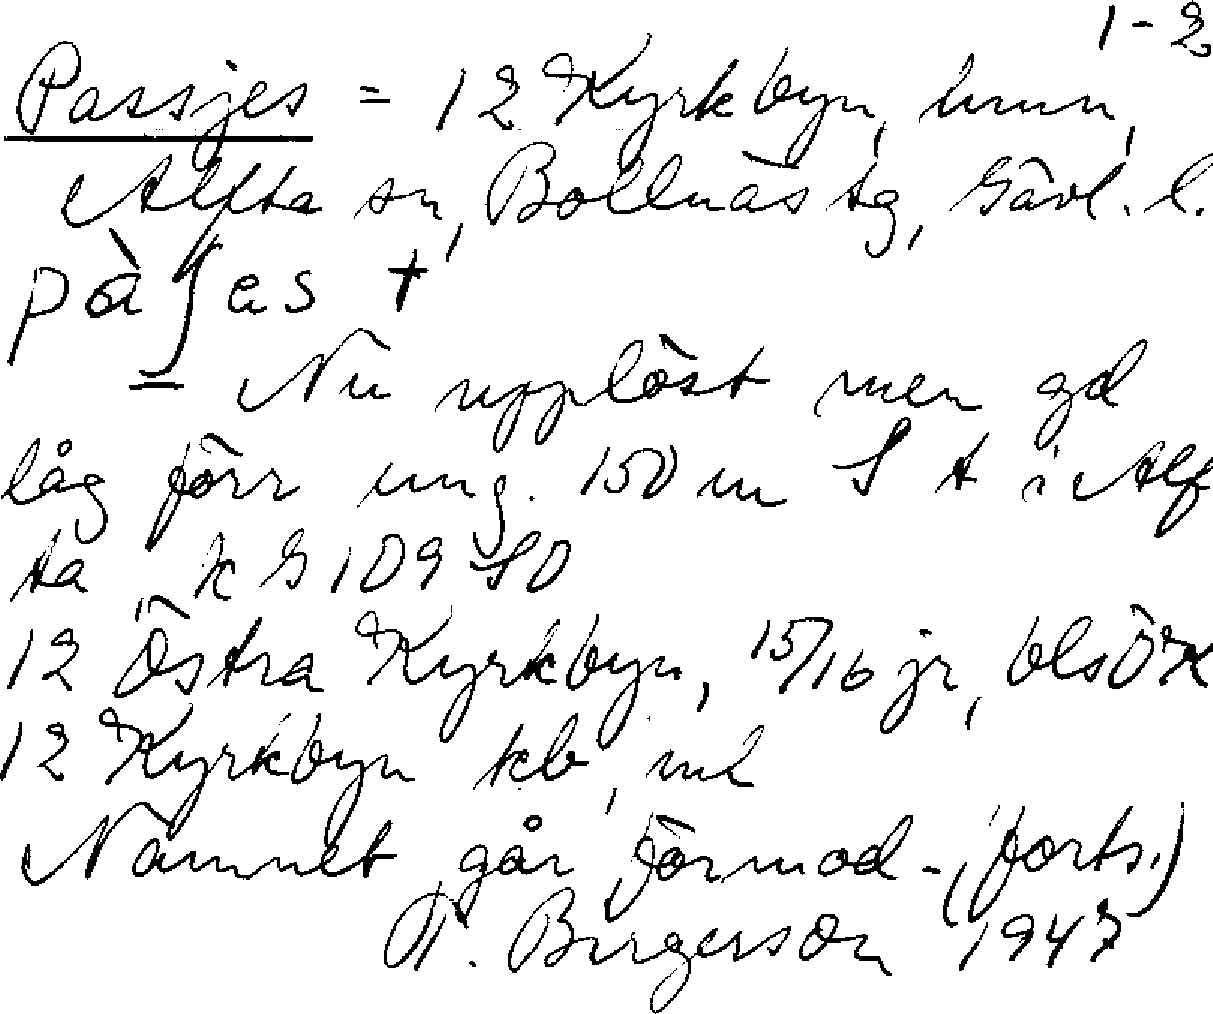 1-2
Passjes = 12 Kyrkbyn, hmn,
Alfta sn, Bollnäs tg, Gävl. l.
pàʃes †
= Nu upplöst men gd
låg förr ung. 150 m S t i Alf
ta, k G 109 SO
12 Östra Kyrkbyn, 15/16 jr,
12 Kyrkbyn kb, ml
Namnet går förmod- (forts.)
Birgerson 1947